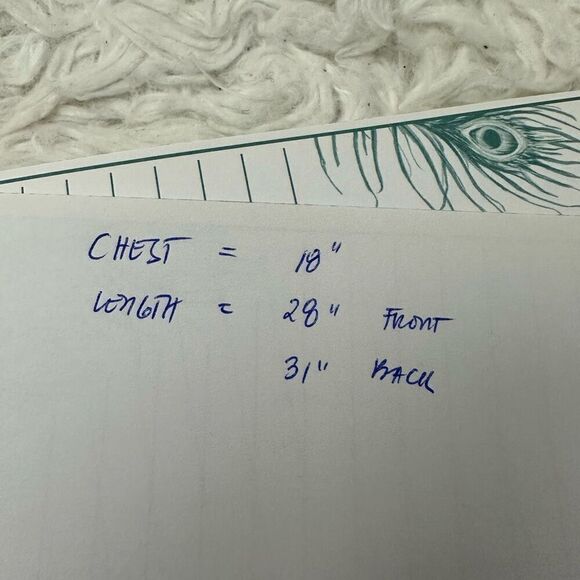 CHEST = 18"
LENGTH = 28" FRONT
31" BACK